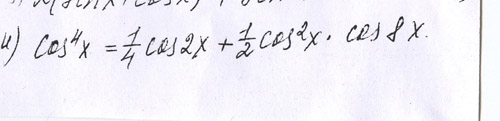 и) cos⁴x = 1/4 cos2x + 1/2 cos²x · cos 8x.